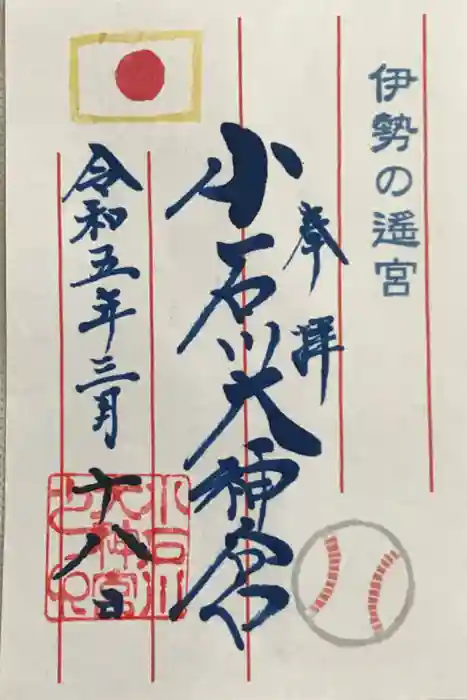 伊勢の遙宮
奉拝
小石川大神宮
令和五年三月
十八日
小石川
大神宮